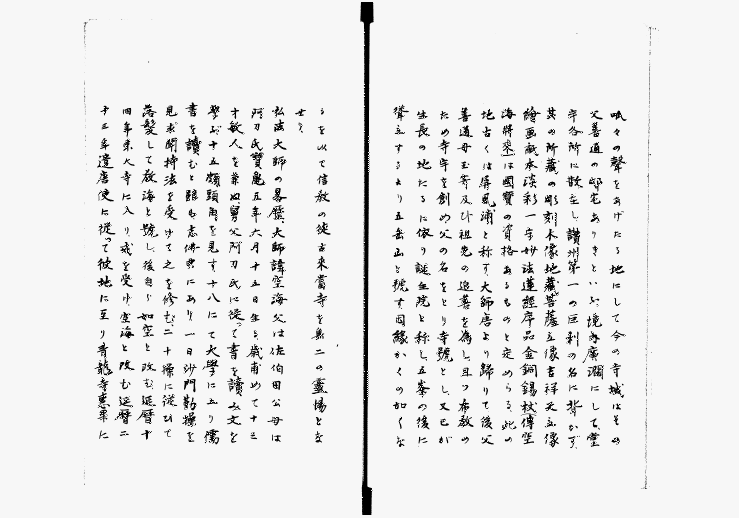 呱々の聲をあげたる地にして今の寺域はその
父善通の邸宅ありきといふ、境内廣濶にして、堂
宇各所に散在し、讃州第一の巨刹の名に背かず、
其の所藏の彫刻木像地藏菩薩立像吉祥天立像
繪画紙本淡彩一字妙法蓮經序品金銅錫杖傳空
海將來は國寶の資格あるものと定めらる、此の
地古くは屏風浦と称す大師唐より歸りて後父
善通母玉寄及び祖先の追善を爲し且つ布教の
ため寺宇を創め父の名をとり寺號とし、又己が
生長の地たるに依り誕生院と称し五峯の後に
聳立するより五岳山と號す因縁かくの如くな
るを以て信教の徒古來當寺を無二の靈場とな
せり、
弘法大師の畧歷、大師諱空海父は佐伯田公母は
阿刀氏寶亀五年六月十五日生る、歲甫めて十三
才敏人を兼ぬ舅父阿刀氏に從って書を讀み文を
學ぶ十五頗頭角を見す十八にて大學に入り儒
書を讀むと雖も志佛典にあり一日沙門勤操を
見求聞持法を受けて之を修む、二十操に從ひて
落髮して教海と號し、後自ら如空と改む延曆十
四年東大寺に入り戒を受け空海と改む延曆二
十三年遣唐使に從って彼地に至り青龍寺惠果に